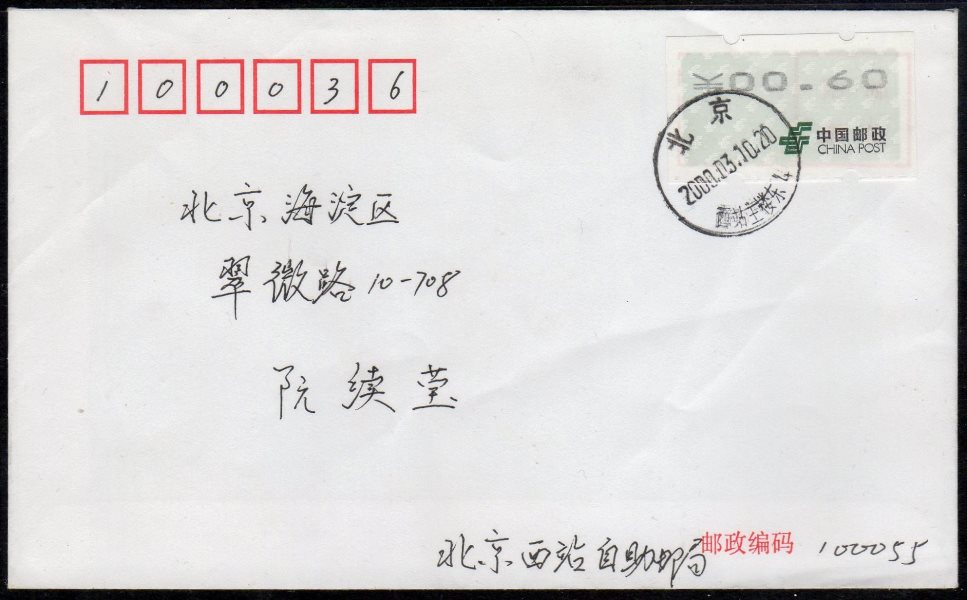 100036
米00.60
中国邮政
CHINA POST
北京
2000.03.10.20
西站主楼东 4
北京海淀区
翠微路10-708
阮续莹
北京西站自助邮局 邮政编码 100055